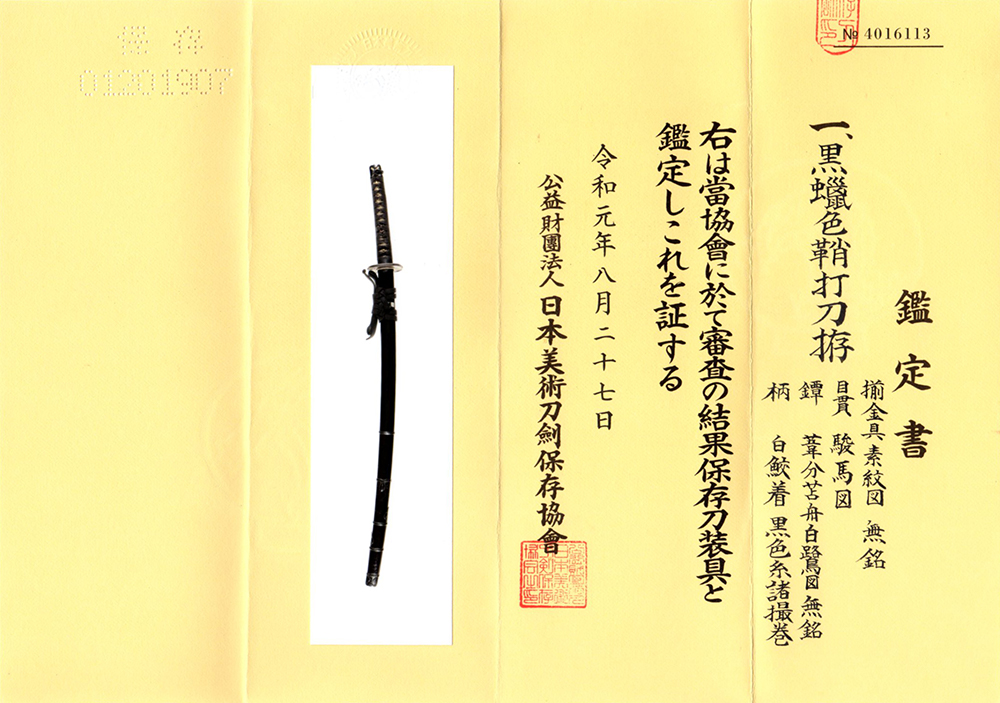 № 4016113
鑑定書
一、黒蠟色鞘打刀拵
揃金具 素紋図 無銘
目貫 駿馬図
鐔 葦分苫舟白鷺図 無銘
柄 白鮫着 黒色糸諸撮巻
右は當協會に於て審査の結果保存刀装具と
鑑定しこれを証する
令和元年八月二十七日
公益財團法人 日本美術刀劍保存協會
保存
01201907